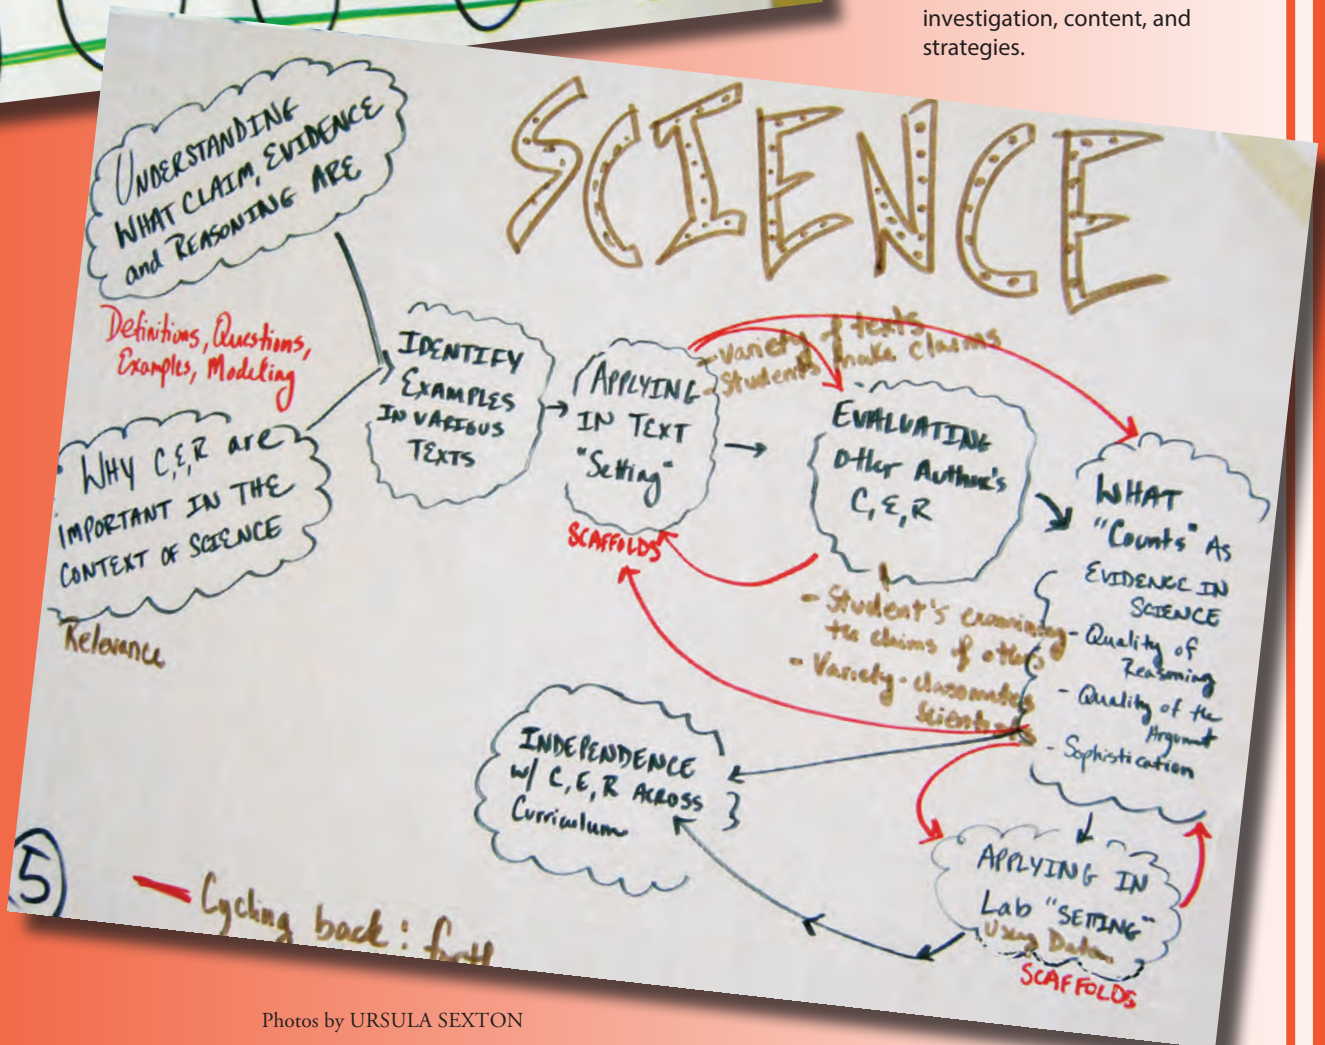 investigation, content, and
strategies.
SCIENCE
UNDERSTANDING
WHAT CLAIM, EVIDENCE
and REASONING ARE
Definitions, Questions,
Examples, Modeling
WHY C,E,R are
IMPORTANT IN THE
CONTEXT OF SCIENCE
Relevance
IDENTIFY
EXAMPLES
IN VARIOUS
TEXTS
APPLYING
IN TEXT
"Setting"
SCAFFOLDS
- Variety of texts,
- Students make claims
EVALUATING
Other Author's
C, E, R
- Student's examining
the claims of others
- Variety - classmates
Scientists
WHAT
"Counts" AS
EVIDENCE IN
SCIENCE
- Quality of
Reasoning
- Quality of the
Argument
- Sophistication
INDEPENDENCE
w/ C, E, R ACROSS
Curriculum
APPLYING IN
Lab "SETTING"
Using Data
SCAFFOLDS
5
Cycling back : forth
Photos by URSULA SEXTON